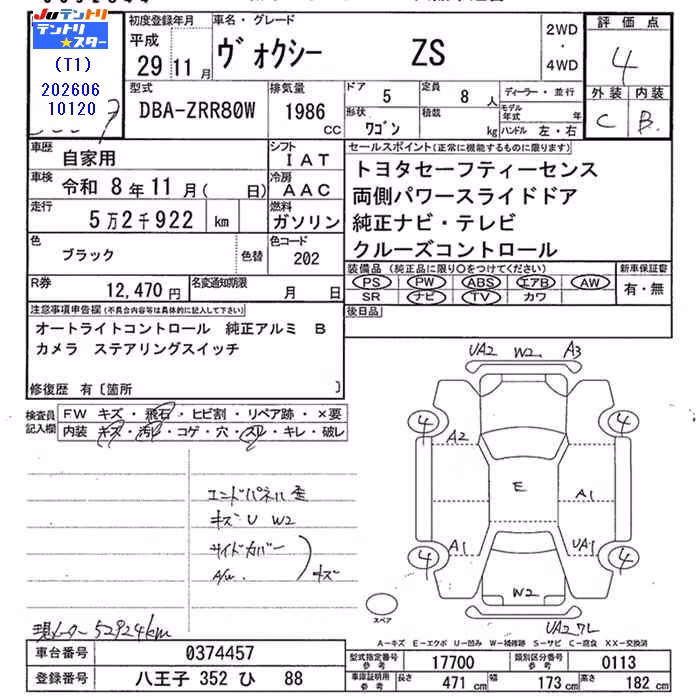 Juテントリ
テントリ★スター
(T1)
202606
10120
初度登録年月
平成
29 11 月
車名・グレード
ヴォクシー ZS
2WD
・
4WD
評価点
4
外装 内装
C B
型式
DBA-ZRR80W
排気量
1986
CC
ドア 5
形状 ワゴン
定員 8 人
積数 kg
ディーラー・並行
モデル年式 年
ハンドル 左・右
車歴 自家用
シフト IAT
車検 令和 8年11月( 日)
冷房 AAC
走行 5万2千922 km
燃料 ガソリン
色 ブラック 色替
色コード 202
R券 12,470円
名変通知期限 月 日
セールスポイント(正常に機能するものに限ります)
トヨタセーフティーセンス
両側パワースライドドア
純正ナビ・テレビ
クルーズコントロール
装備品(純正品に限り○をつけてください)
PS PW ABS エアB AW
SR ナビ TV カワ
新車保証書
有・無
後日品
注意事項申告欄(不具合内容等は具体的に記入して下さい)
オートライトコントロール 純正アルミ B
カメラ ステアリングスイッチ
修復歴 有〔箇所 〕
検査員記入欄
FW キズ・飛石・ヒビ割・リペア跡・×要
内装 キズ・汚れ・コゲ・穴・スレ・キレ・破レ
エンドパネル歪
キズ U W2
サイドカバー
A/w キズ
現メーター52924km
UA2 W2 A3
4 4
A2
E
A1
A1 UA1
4 4
W2
スペア
UA2 ワレ
A－キズ E－エクボ U－凹み W－補修跡 S－サビ C－腐食 XX－交換済
車台番号 0374457
登録番号 八王子 352 ひ 88
型式指定番号 参考 17700
類別区分番号 参考 0113
車庫証明用 参考 長さ 471 cm 幅 173 cm 高さ 182 cm